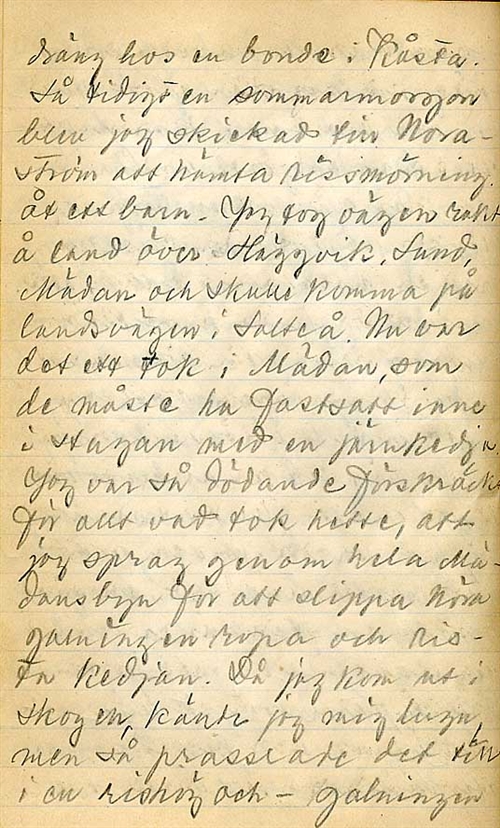 dräng hos en bonde i Råsta.
Så tidigt en sommarmorgon
blev jag skickad till Nora-
ström att hämta rissmörning
åt ett barn. Jag tog vägen rakt
å land över Häggvik, Sund,
Mädan och skulle komma på
landsvägen i Salteå. Nu var
det ett tok i Mädan, som
de måste ha fastsatt inne
i stugan med en järnkedja.
Jag var så dödande förskräckt
för allt vad tok hette, att
jag sprag genom hela Mä-
dansbyn för att slippa höra
galningen ropa och ris-
ta kedjan. Då jag kom ut i
skogen, kände jag mig lugn,
men så prasslade det till
i en rishög och - galningen